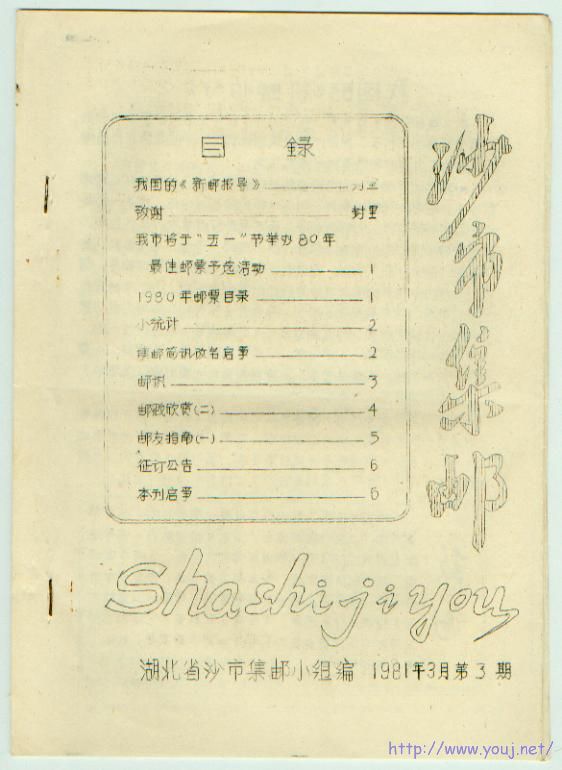 目 録
我国的《新邮报导》 封里
致谢 封里
我市将于“五一”节举办80年
最佳邮票予选活动 1
1980年邮票目录 1
小统计 2
集邮简讯改名启事 2
邮识 3
邮戳欣赏(二) 4
邮友指南(一) 5
征订公告 6
本刊启事 6
沙市集邮
Shashijiyou
湖北省沙市集邮小组编 1981年3月第3期
http://www.youj.net/